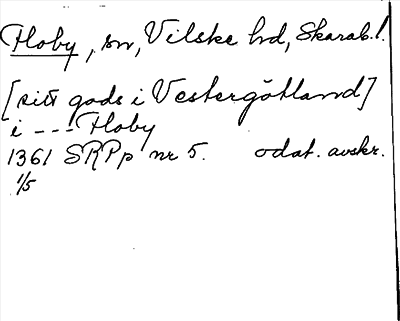 Floby, sn, Vilske hd, Skarab.l.
[sitt gods i Vestergötland]
i --- Floby
1361 SRPp nr 5. odat. avskr.
1/5